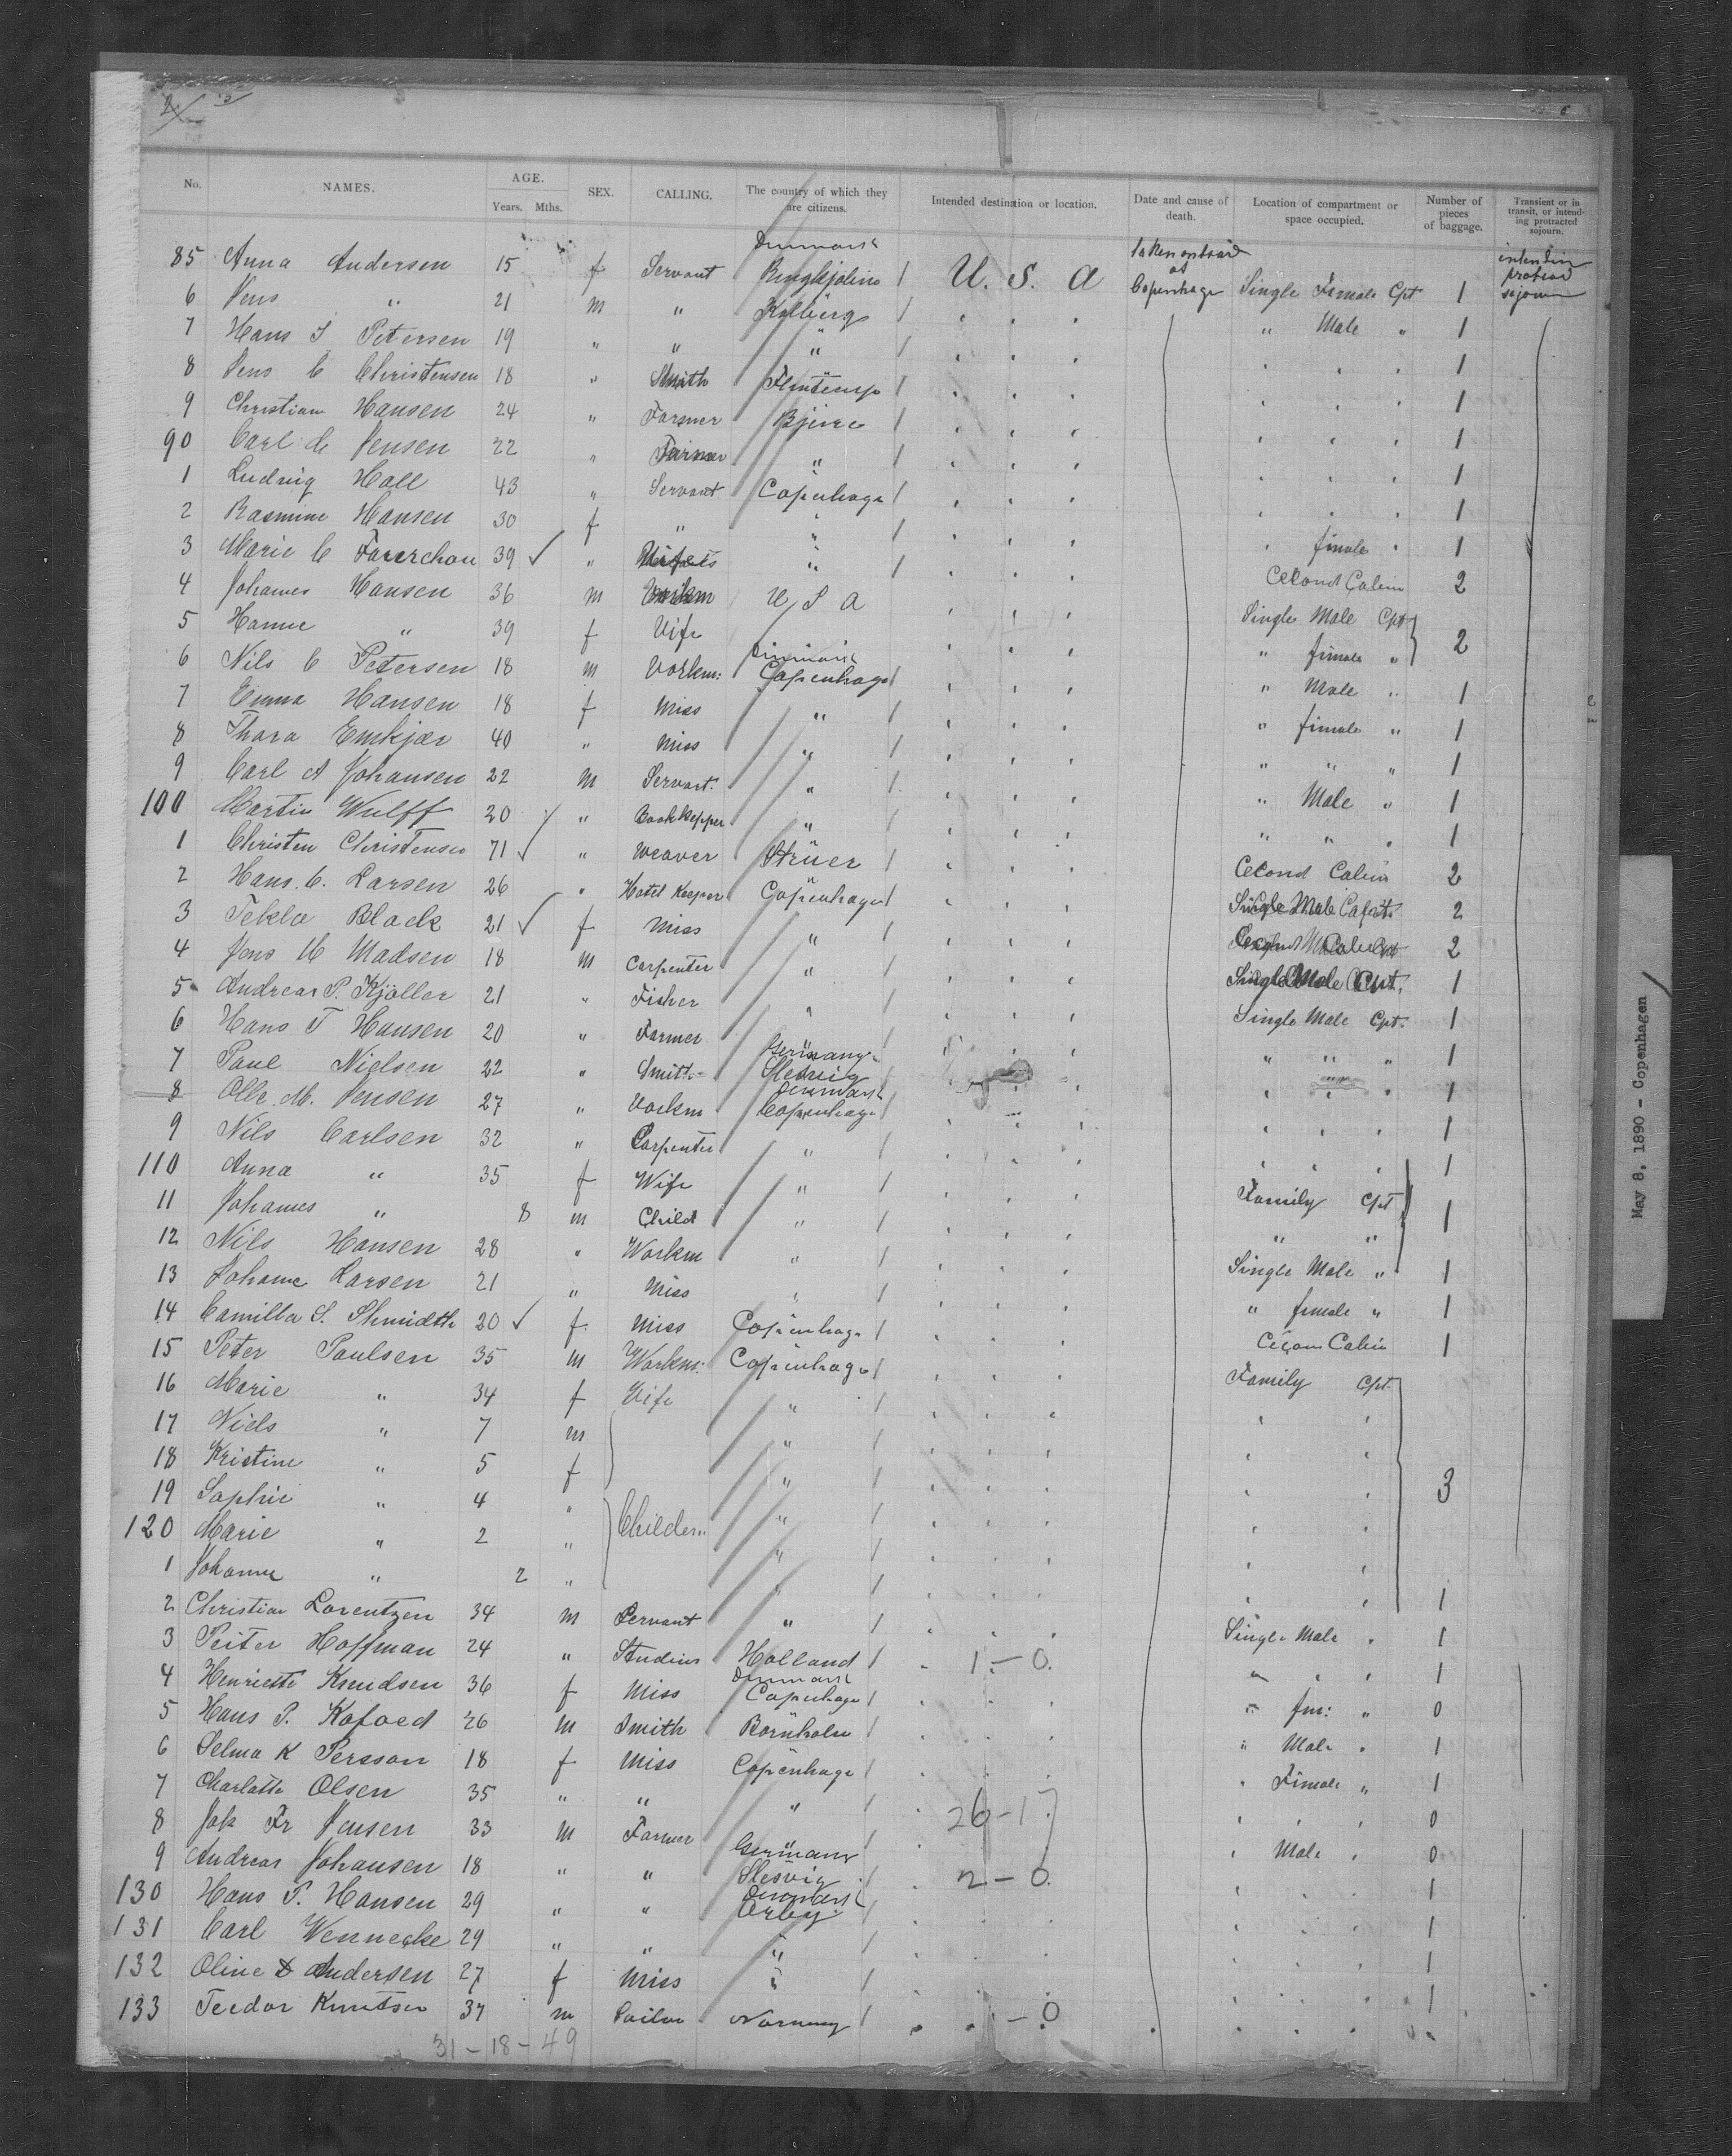 No. NAMES. AGE. Years. Mths. SEX. CALLING. The country of which they are citizens. Intended destination or location. Date and cause of death. Location of compartment or space occupied. Number of pieces of baggage. Transient or in transit, or intending protracted sojourn.
85 Anna Andersen 15 f Servant Denmark U. S. A Taken onboard at Copenhage Single Female Cpt 1
6 Jens " 21 m " " Male " 1
7 Hans J Petersen 19 " " " 1
8 Jens C Christensen 18 " Smith 1
9 Christian Hansen 24 " Farmer 1
90 Carl Jensen 22 " Farmer " 1
1 Ludvig Hall 43 " Servant Copenhage 1
2 Rasmine Hansen 30 f " " 1
3 Marie C 39 " " female " 1
4 Johannes Hansen 36 m U S A Cecond Cabin 2
5 Hanne " 39 f Vife Single Male Cpt
6 Nils C Petersen 18 m Vorkm: Denmark Copenhage " female " 2
7 Emma Hansen 18 f Miss " " Male " 1
8 Thora Emkjær 40 " Miss " " female " 1
9 Carl A Johansen 22 m Servant " " " " 1
100 Martin Wulff 20 " Bookkepper " " Male " 1
1 Christen Christensen 71 " Weaver Strüer " " " 1
2 Hans C. Larsen 26 " Hotel Keeper Copenhage Cecond Cabin 2
3 Tekla Black 21 f Miss " 2
4 Jens M Madsen 18 m Carpenter " 2
5 Andreas P. Kjöller 21 " Fisher " Single Male Cpt. 1
6 Hans T Hansen 20 " Farmer Single Male Cpt. 1
7 Paul Nielsen 22 " Smith Germany Slesvig " " " 1
8 Olle. M. Jensen 27 " Vorkm Denmark Copenhage 1
9 Nils Carlsen 32 " Carpenter " 1
110 Anna " 35 f Wife " 1
11 Johannes " 8 m Child " Family Cpt 1
12 Nils Hansen 28 " Workm " " "
13 Johanne Larsen 21 " Miss " Single Male " 1
14 Camilla S. Shmidth 20 f Miss Copenhage " female " 1
15 Peter Poulsen 35 m Workm: Copenhage Cabin 1
16 Marie " 34 f Vife " Family Cpt.
17 Niels " 7 m "
18 Kristine " 5 f "
19 Sophie " 4 " Childern " 3
120 Marie " 2 " "
1 Johanne " 2 " "
2 Christian Lorentzen 34 m Servant " 1
3 Peiter Hoffman 24 " Holland 1-0. Single Male " 1
4 Henriette Knudsen 36 f Miss Denmark Copenhage 1
5 Hans P. Kofoed 26 m Smith Bornholm " fm: " 0
6 Selma K Persson 18 f Miss Copenhage " Male " 1
7 Charlotte Olsen 35 " " " Fimale " 1
8 Jok Fr Jensen 33 m Farmer 26-17 0
9 Andreas Johansen 18 " " Germany Slesvig 2-0. Male 0
130 Hans P. Hansen 29 " " Denmark 1
131 Carl Wennecke 29 " " " 1
132 Oline Andersen 27 f Miss " 1
133 Teodor Knutsen 37 m Sailor Norway 1-0 1
31-18-49
May 8, 1890 - Copenhagen